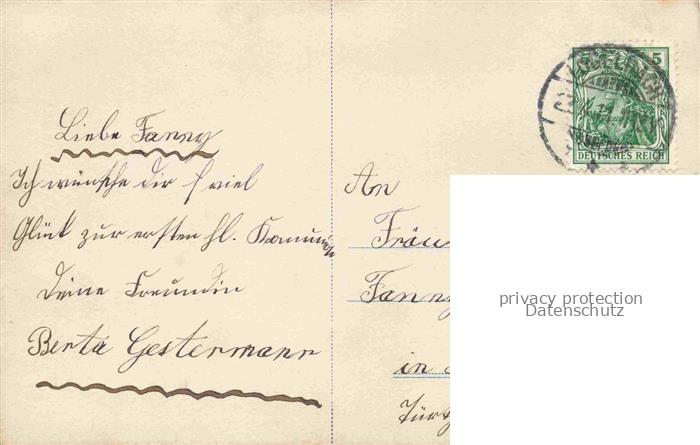 Liebe Fanny
Ich wünsche dir viel
Glück zur ersten hl. Komunion
Deine Freundin
Berta Gestermann
5
DEUTSCHES REICH
An
Fräu
Fanny
in
privacy protection
Datenschutz